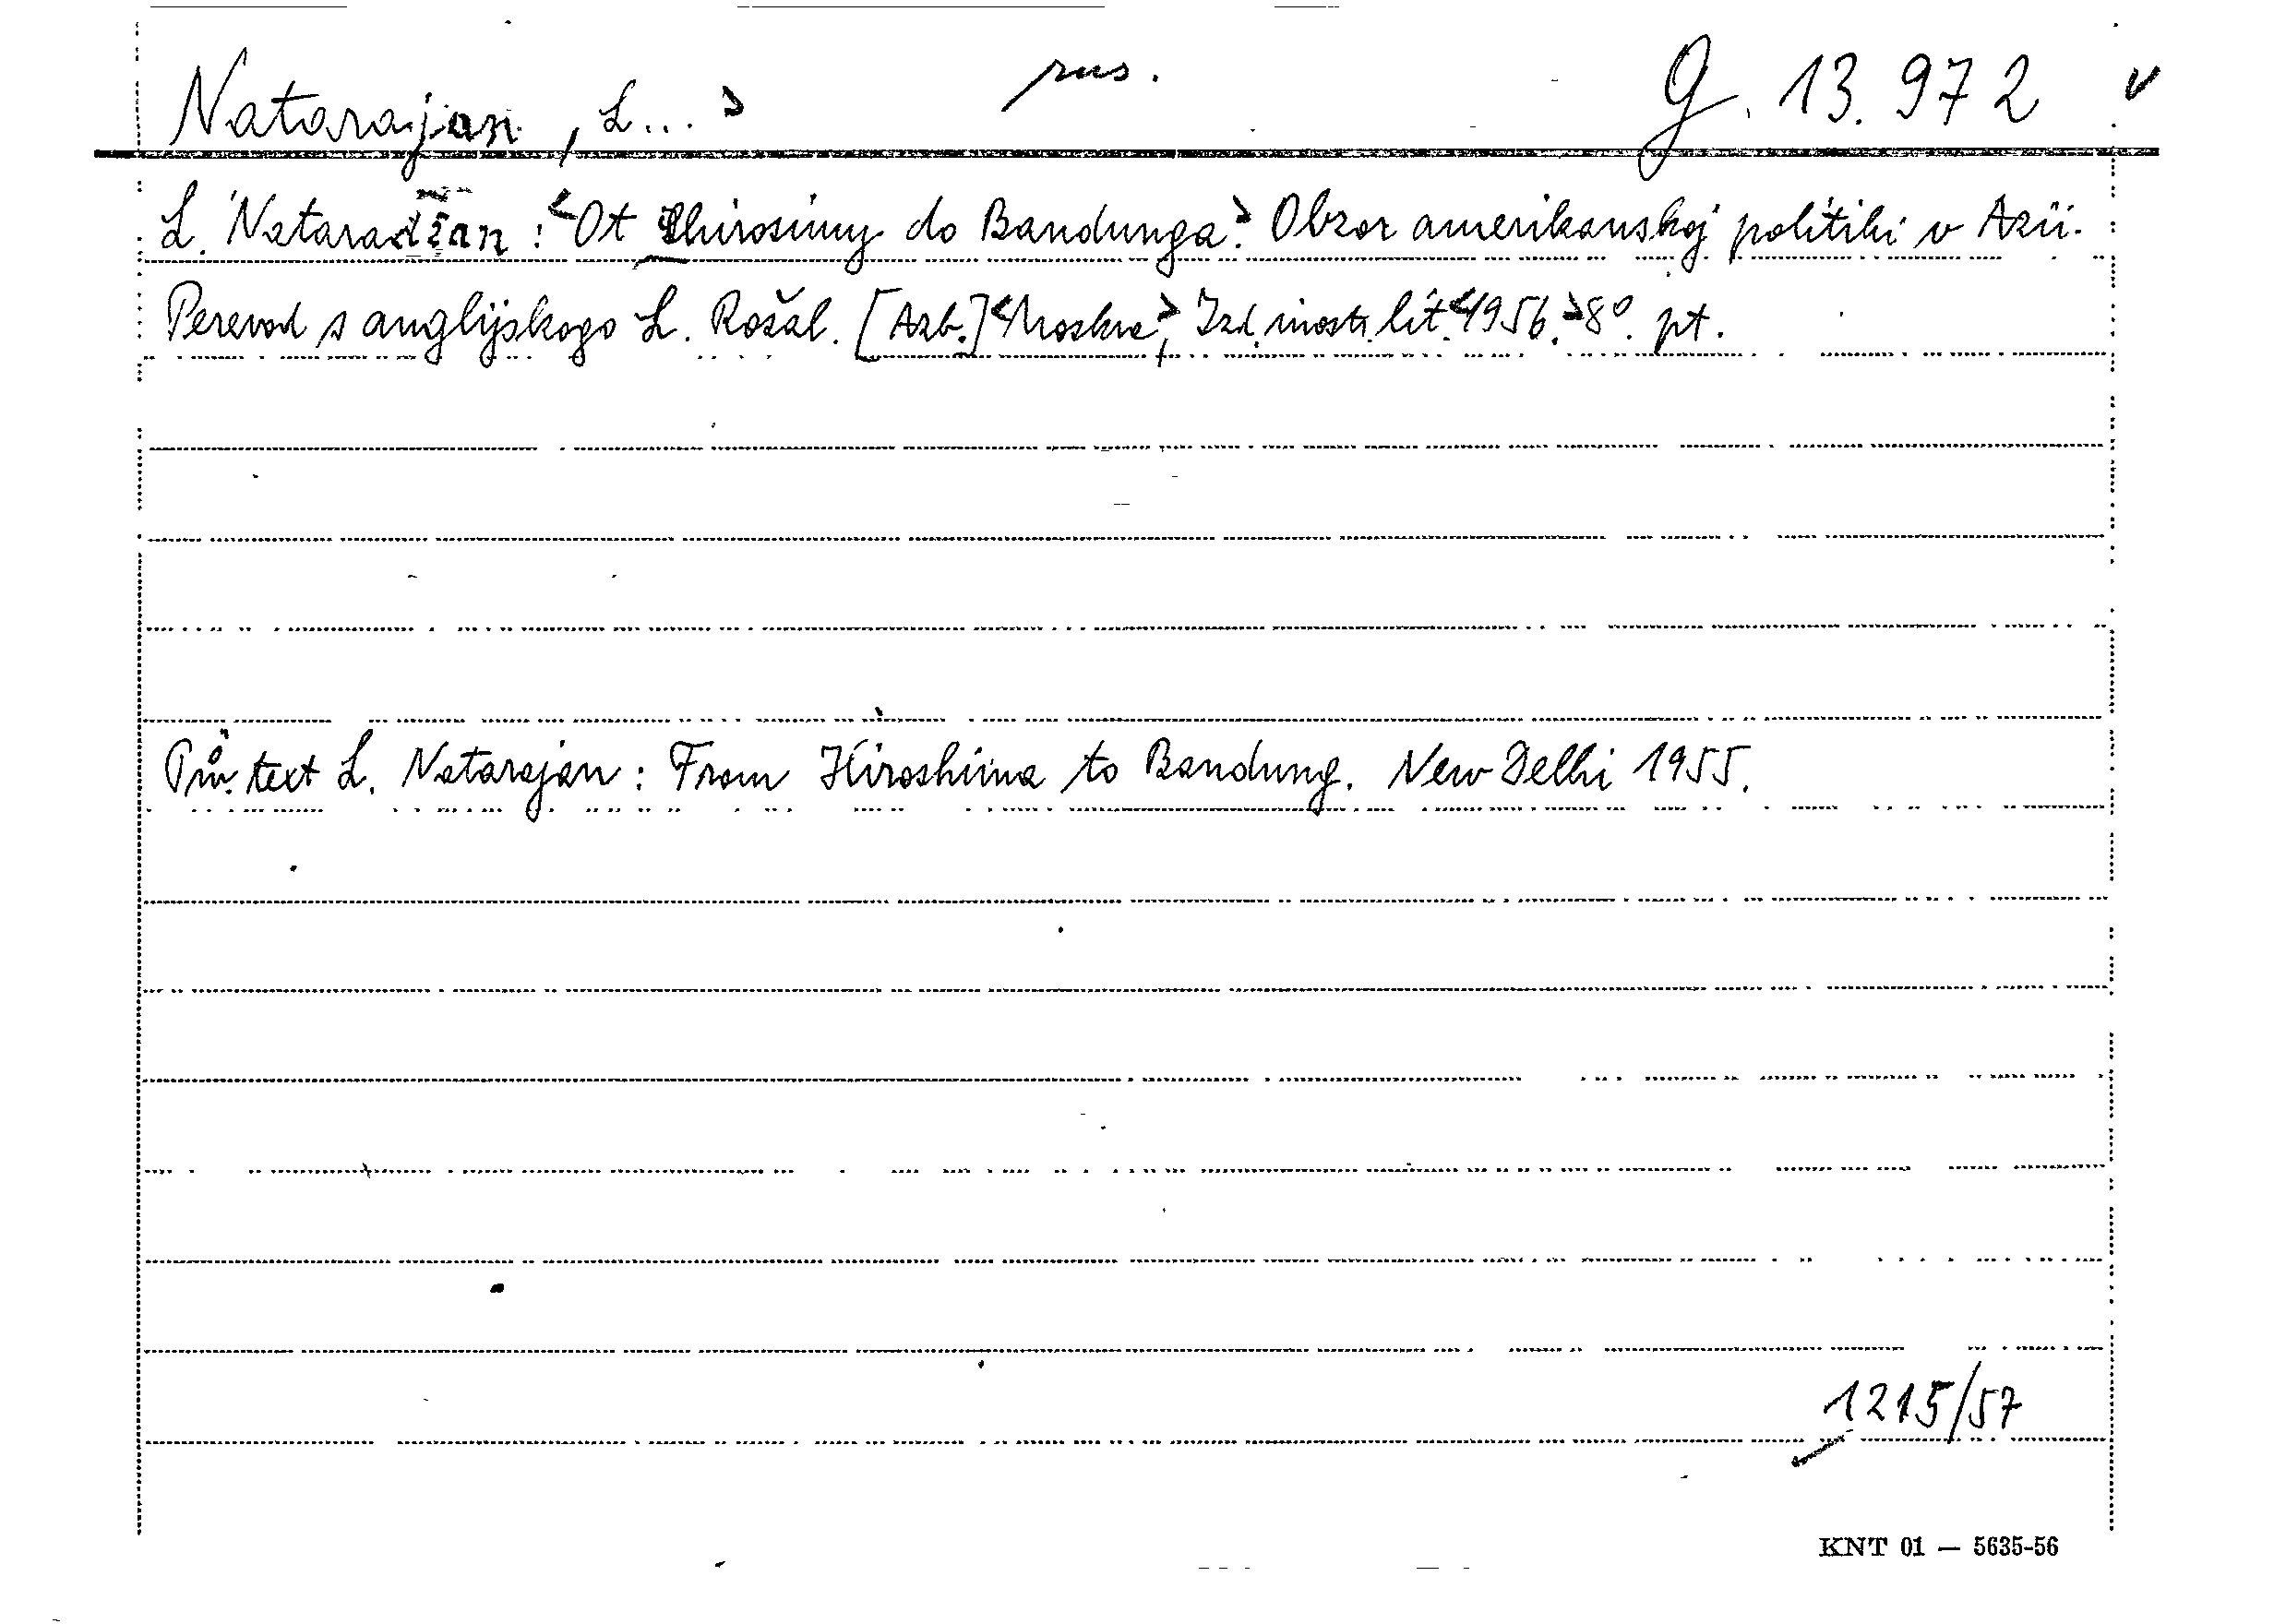 Natarajan, L... > rus. G. 13.972 v
L. Nataradžan: <Ot Chirosimy do Bandunga.> Obzor amerikanskoj politiki v Azii.
Perevod s anglijskogo L. Rošal. [Azb.] <Moskva>, Izd. inostr. lit. <1956.> 8°. pt.
Pův. text L. Natarajan: From Hiroshima to Bandung. New Delhi 1955.
1215/57
KNT 01 — 5635-56